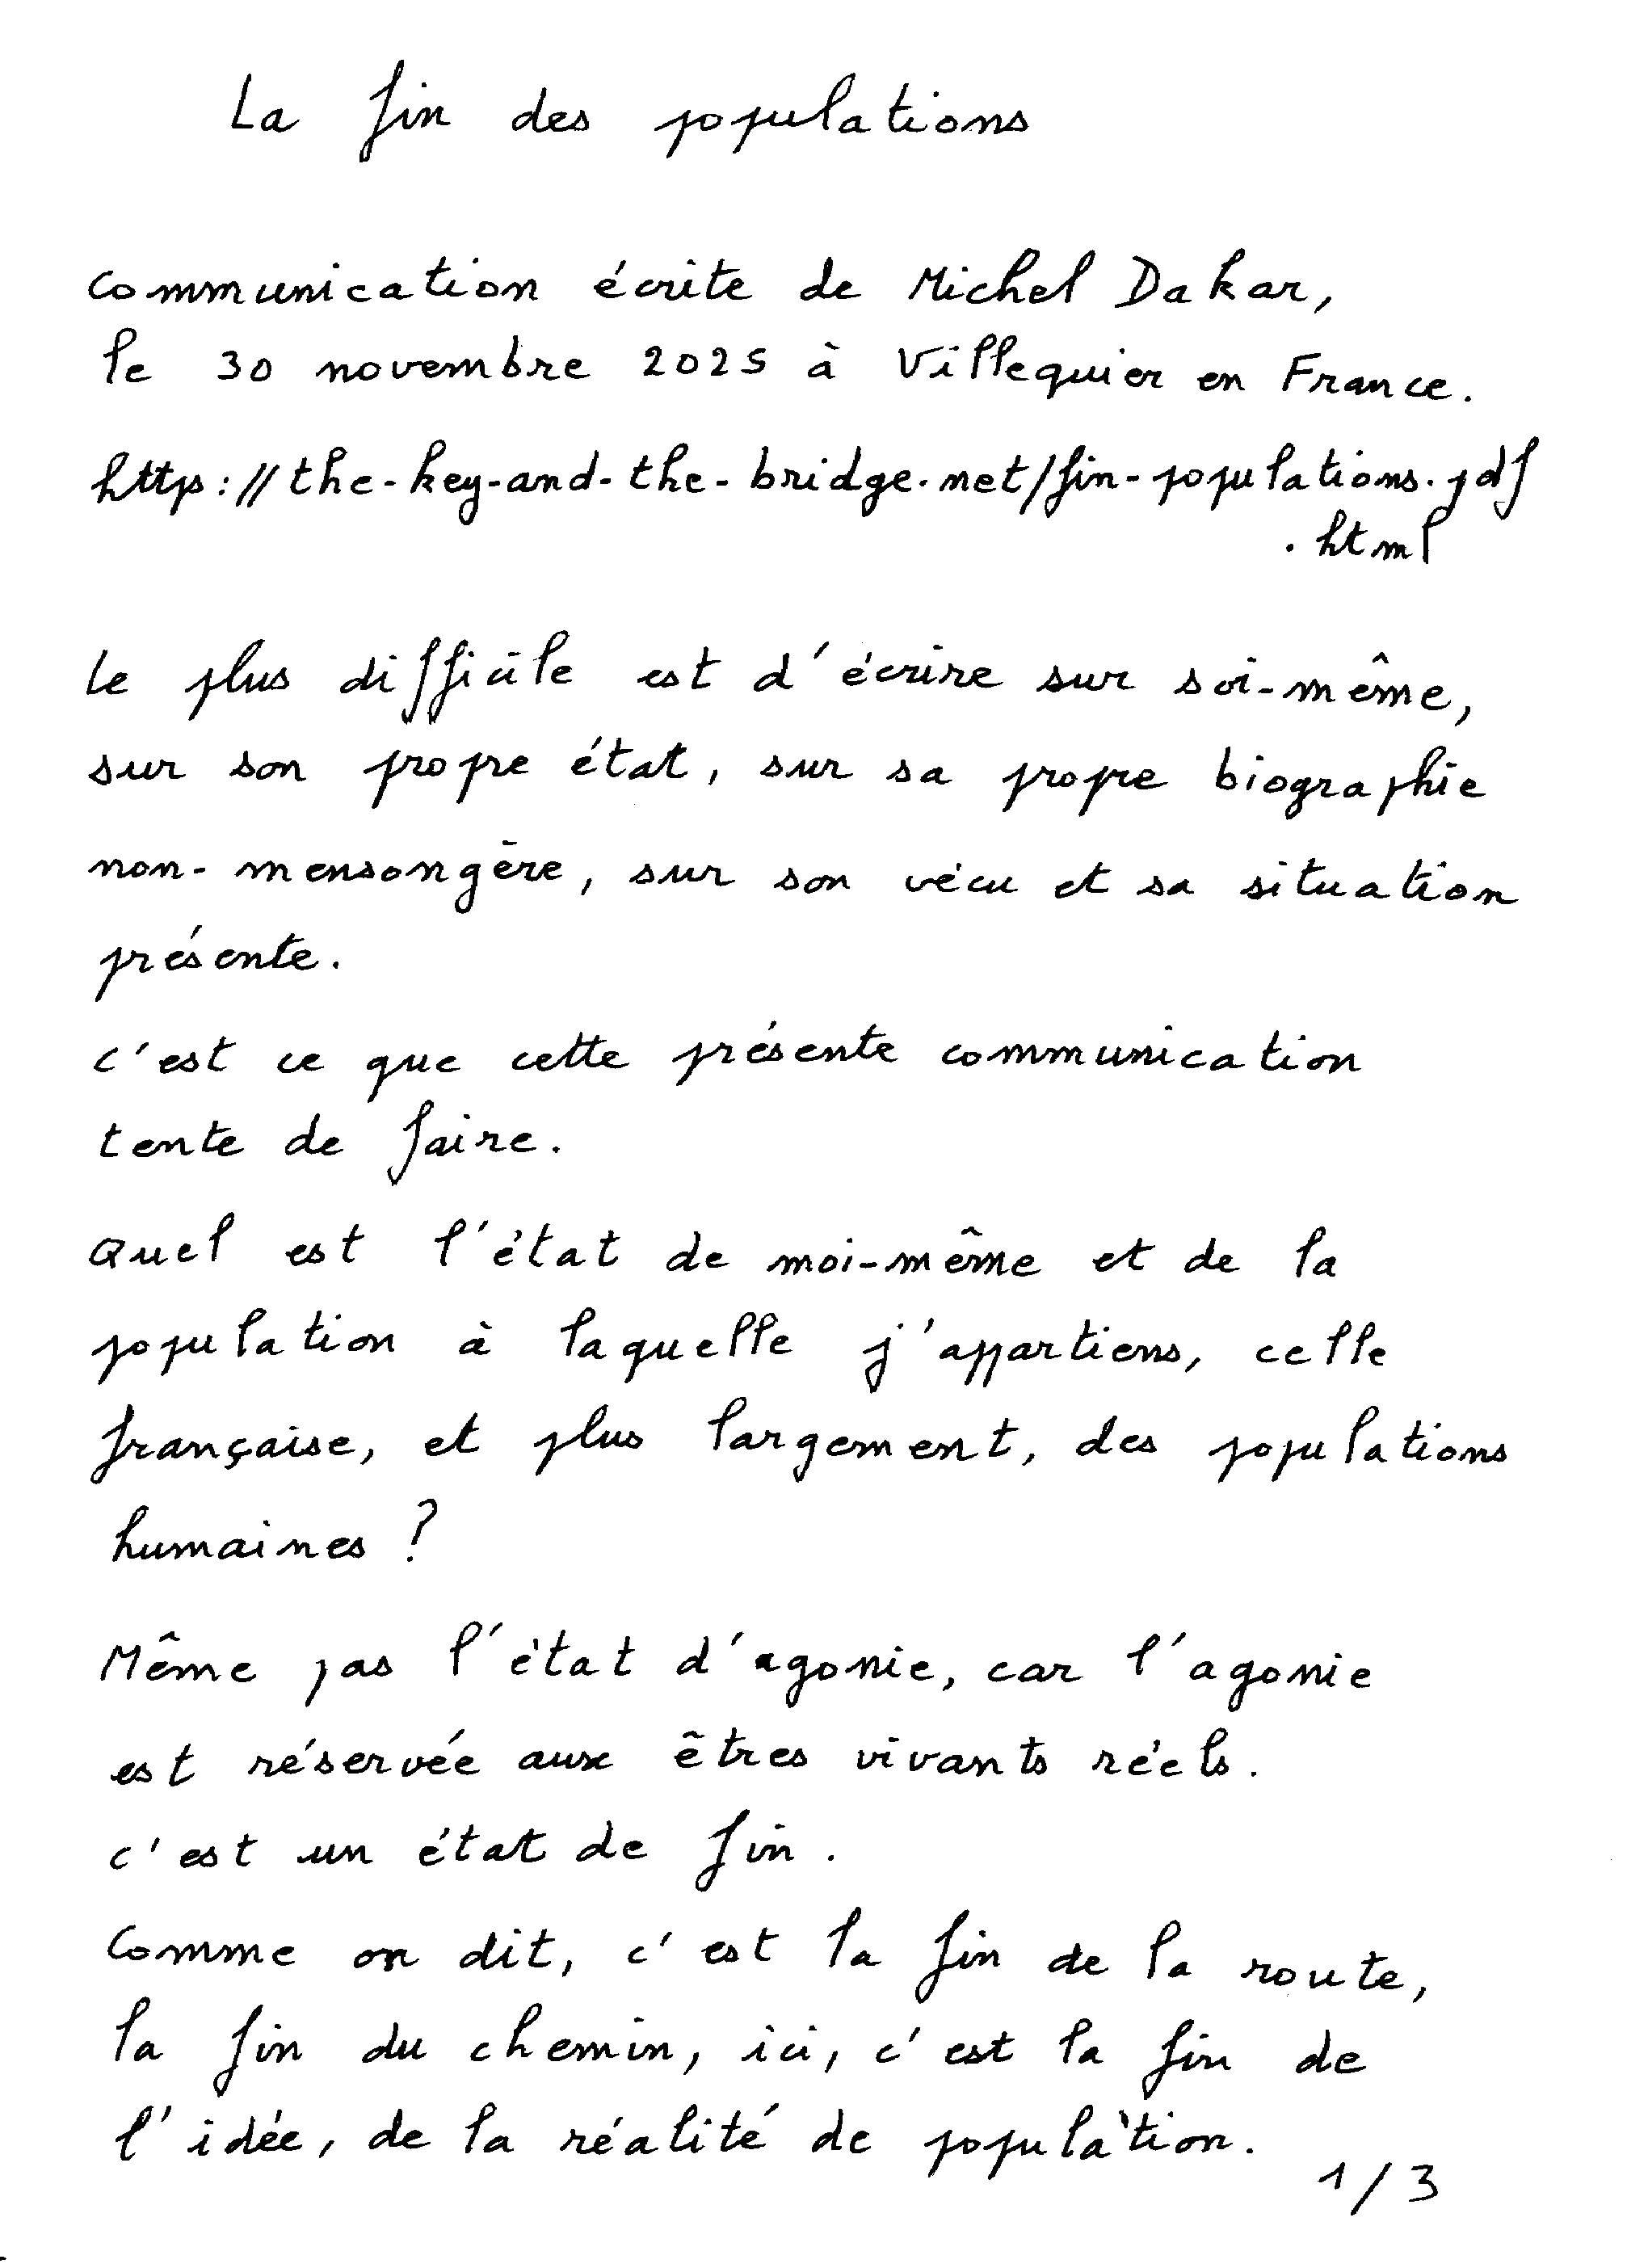 La fin des populations
Communication écrite de Michel Dakar,
le 30 novembre 2025 à Villequier en France.
http://the-key-and-the-bridge.net/fin-populations.pdf
.html
Le plus difficile est d'écrire sur soi-même,
sur son propre état, sur sa propre biographie
non-mensongère, sur son vécu et sa situation
présente.
C'est ce que cette présente communication
tente de faire.
Quel est l'état de moi-même et de la
population à laquelle j'appartiens, celle
française, et plus largement, des populations
humaines ?
Même pas l'état d'agonie, car l'agonie
est réservée aux êtres vivants réels.
C'est un état de fin.
Comme on dit, c'est la fin de la route,
la fin du chemin, ici, c'est la fin de
l'idée, de la réalité de population.
1/3